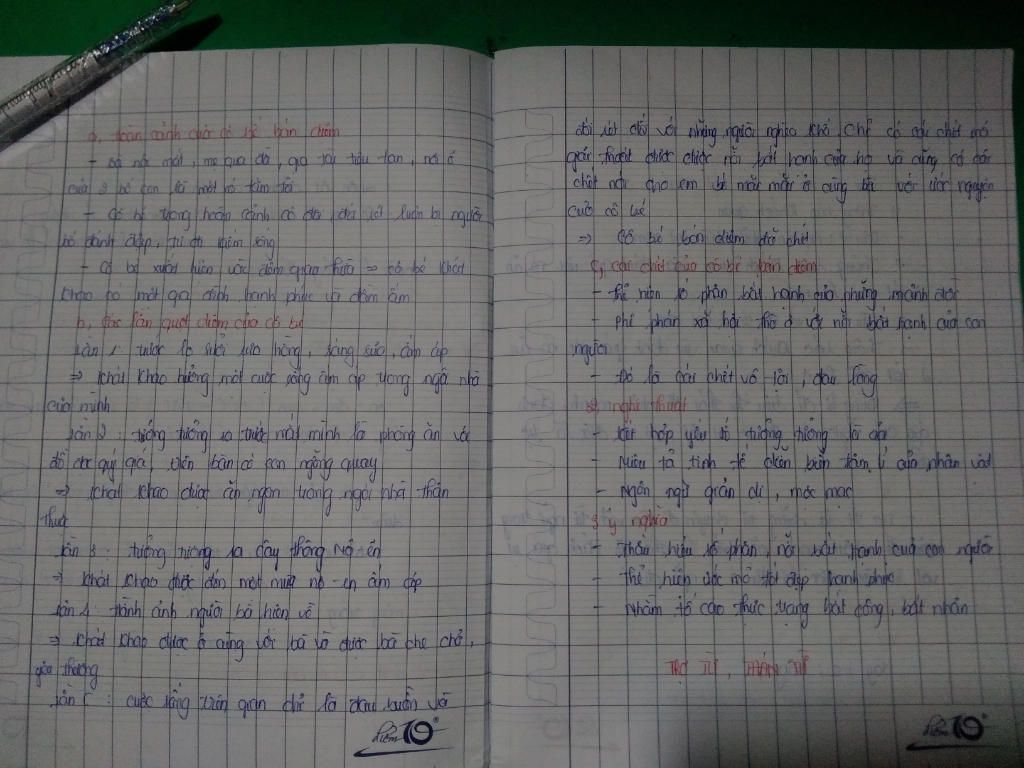 a, hoàn cảnh của cô bé bán diêm
- bà nội mất, mẹ qua đời, gia tài tiêu tan, nơi ở
của 2 bố con là một xó tăm tối
- Cô bé trong hoàn cảnh cô đơn, đói rét luôn bị người
bố đánh đập, tự đi kiếm sống
- Cô bé xuất hiện vào đêm giao thừa => cô bé khát
khao có một gia đình hạnh phúc và đầm ấm
b, Các lần quẹt diêm của cô bé
Lần 1: trước lò sưởi rực hồng, sáng sủa, ấm áp
=> khát khao hưởng một cuộc sống ấm áp trong ngôi nhà
của mình
Lần 2: tưởng tượng ra trước mắt mình là phòng ăn với
đồ đạc quý giá, trên bàn có con ngỗng quay
=> khát khao được ăn ngon trong ngôi nhà thân
thuộc
Lần 3: tưởng tượng ra cây thông Nô-en
=> khát khao được đón một mùa nô-en ấm áp
Lần 4: Hình ảnh người bà hiện về
=> khát khao được ở cùng với bà và được bà che chở,
yêu thương
Lần 5: cuộc sống trên gian chỉ là đau buồn và
điểm 10
đói rét đối với những người nghèo khổ, chỉ có cái chết mới
giải thoát được được nỗi bất hạnh của họ và cũng có cái
chết nơi cho em bé mãi mãi ở cùng bà với ước nguyện
của cô bé
=> Cô bé bán diêm đã chết
c, Cái chết của cô bé bán diêm
- thể hiện số phận bất hạnh của những mảnh đời
- Phê phán xã hội thờ ơ với nỗi bất hạnh của con
người
- Đó là cái chết vô tội, đau lòng
2, nghệ thuật
- kết hợp yếu tố tưởng tượng
- Miêu tả tinh tế diễn biến tâm lí của nhân vật
- Ngôn ngữ giản dị, mộc mạc
3, ý nghĩa
- Thấu hiểu số phận, nỗi bất hạnh của con người
- Thể hiện ước mơ tốt đẹp hạnh phúc
- Nhằm tố cáo thực trạng bất công, bất nhân
TRỢ TỪ, THÁN TỪ
điểm 10